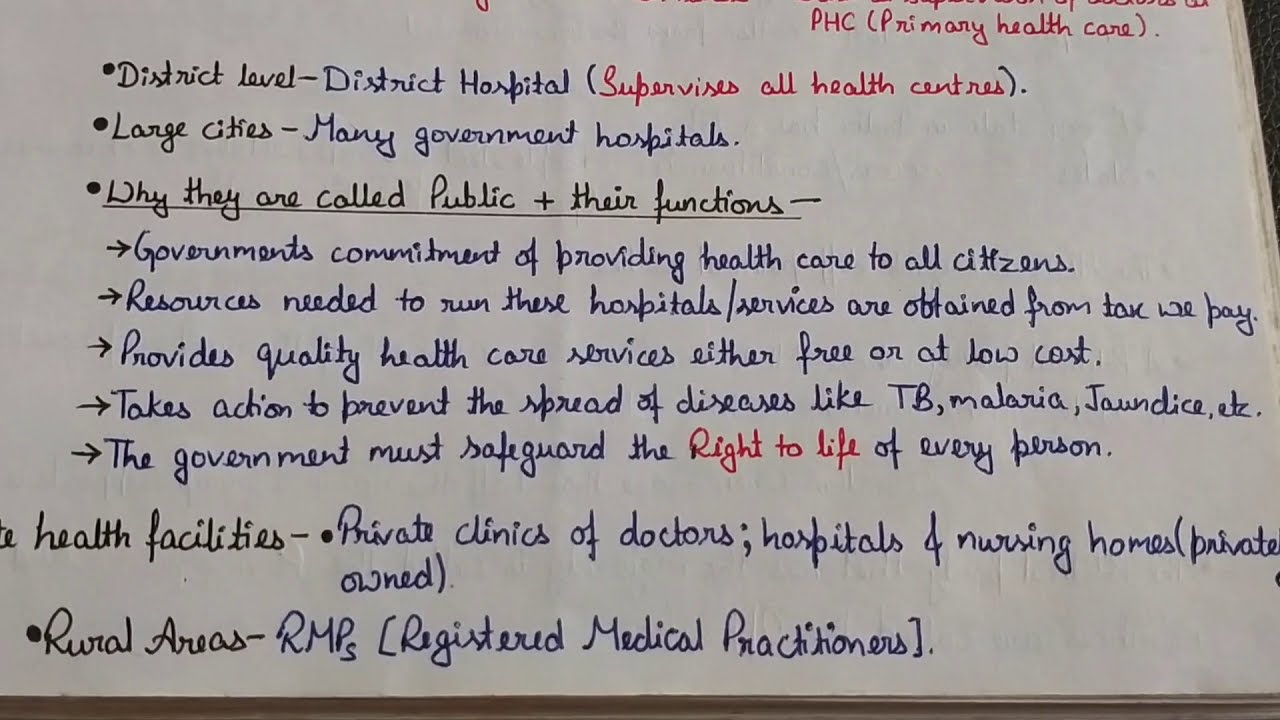 PHC (Primary health care).
•District level-District Hospital (Supervises all health centres).
•Large cities - Many government hospitals.
•Why they are called Public + their functions-
→Governments commitment of providing health care to all citizens.
→Resources needed to run these hospitals/services are obtained from tax we pay.
→Provides quality health care services either free or at low cost.
→Takes action to prevent the spread of diseases like TB, malaria, Jaundice, etc.
→The government must safeguard the Right to life of every person.
health facilities-•Private clinics of doctors; hospitals & nursing homes (private
owned).
•Rural Areas- RMPs [Registered Medical Practitioners].